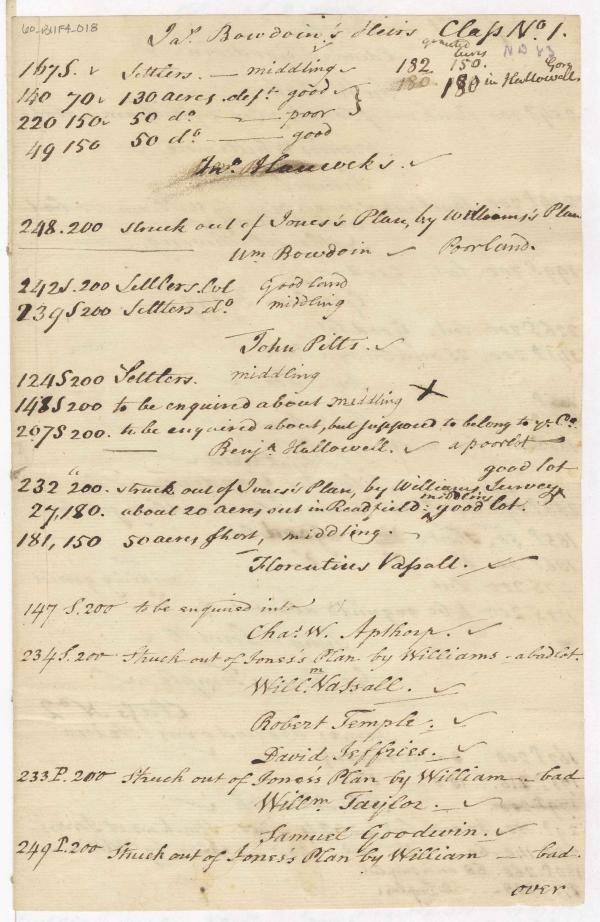 60-B11F4-018
Jas. Bowdoin's Heirs Class No. 1.
granted
167 S. Settlers. — middling 182. 150.
140 70 130 acres. deft. good 180. 180 in Hallowell
220 150 50 do. — poor
49 150 50 do. — good
Jno. Hancock's.
248. 200 struck out of Jones's Plan, by Williams's Plan
Wm Bowdoin Poorland.
242 S. 200 Settlers. Good land
239 S 200 Settlers do. middling
John Pitts.
124 S 200 Settlers. middling
148 S 200 to be enquired about middling X
207 S 200. to be enquired about, but supposed to belong to ye Co.
Benja. Hallowell. a poor lot
good lot
232 " 200. struck out of Jones's Plan, by Williams Survey
middling
27, 180. about 20 acres out in Readfield: good lot.
181, 150 50 acres short, middling.
Florentius Vassall.
147 S. 200 to be enquired into
Chas. W. Apthorp.
234 S. 200 Struck out of Jones's Plan by Williams - a bad lot.
Willm. Vassall.
Robert Temple.
David Jeffries.
233 P. 200 Struck out of Jones's Plan by William — bad
Willm. Taylor.
Samuel Goodwin.
249 P. 200 Struck out of Jones's Plan by William — bad.
over